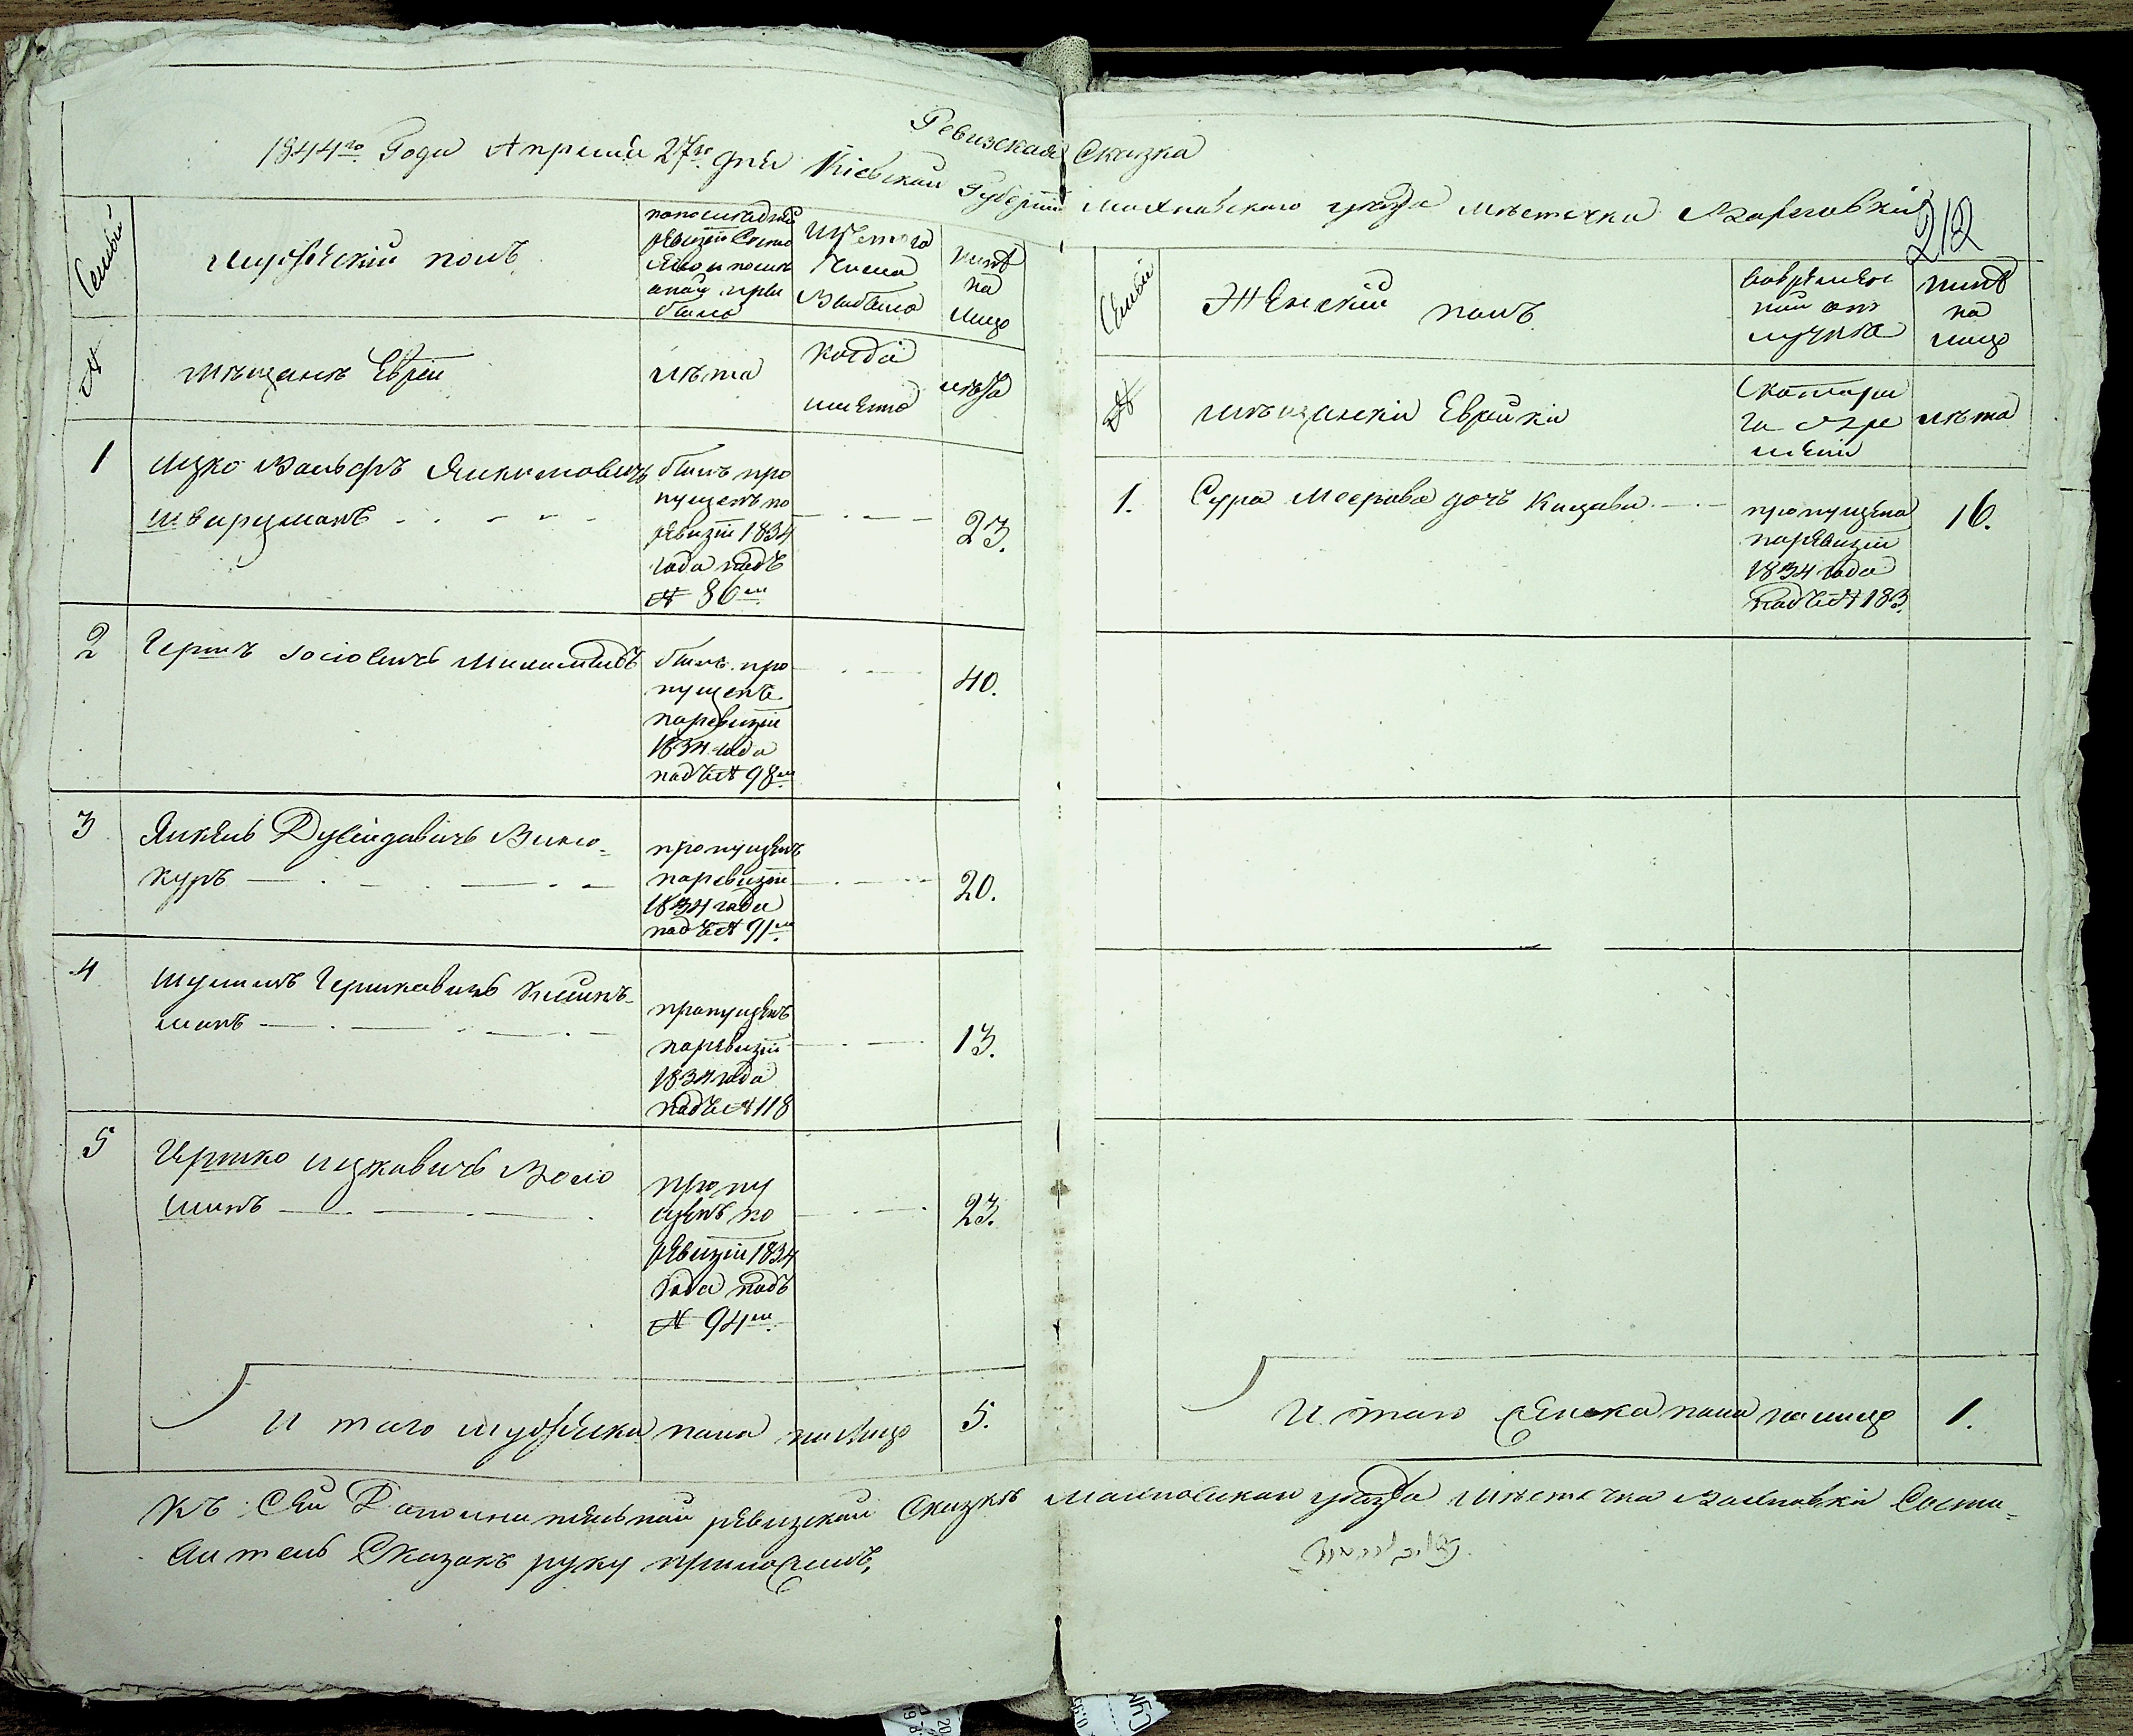 Ревизская Сказка
1844го Года Апреля 27го дня Кіевской Губерніи Махновскаго уезда местечка
212
Семьи
мужескій полъ
по последней
ревизіи состо
яло и после
оной при
было
Изъ того
числа
Выбыло
ныне
на
лицо
№
мещанъ Еврей
лета
когда
именно
лета
1
Ицко Вольфъ Янкелевичъ
Шварцманъ
былъ про
пущенъ по
ревизіи 1834
года подъ
№ 86м
23.
2
Гершъ Іосіовичъ
былъ про
пущенъ
по ревизіи
1834 года
подъ № 98м
40.
3
Янкель Дувидовичъ Вино-
куръ
пропущенъ
по ревизіи
1834 года
подъ № 91м
20.
4
Шулимъ Гершковичъ
манъ
пропущенъ
по ревизіи
1834 года
подъ № 118
13.
5
Гершко Ицковичъ Воло
шинъ
пропу
щенъ по
ревизіи 1834
года подъ
№ 94м
23.
И того мужеска пола на лицо 5.
Семьи
Женскій полъ
во временной
отлучке
ныне
на
лицо
№
мещанки Еврейки
С котораго
времени
лета
1.
Сура Меерова дочь
пропущена
по ревизіи
1834 года
подъ № 183.
16.
И того женска пола на лицо 1.
Къ Сей Дополнительной ревизской Сказке Махновскаго уезда местечка Соста-
витель Сказокъ руку приложилъ,